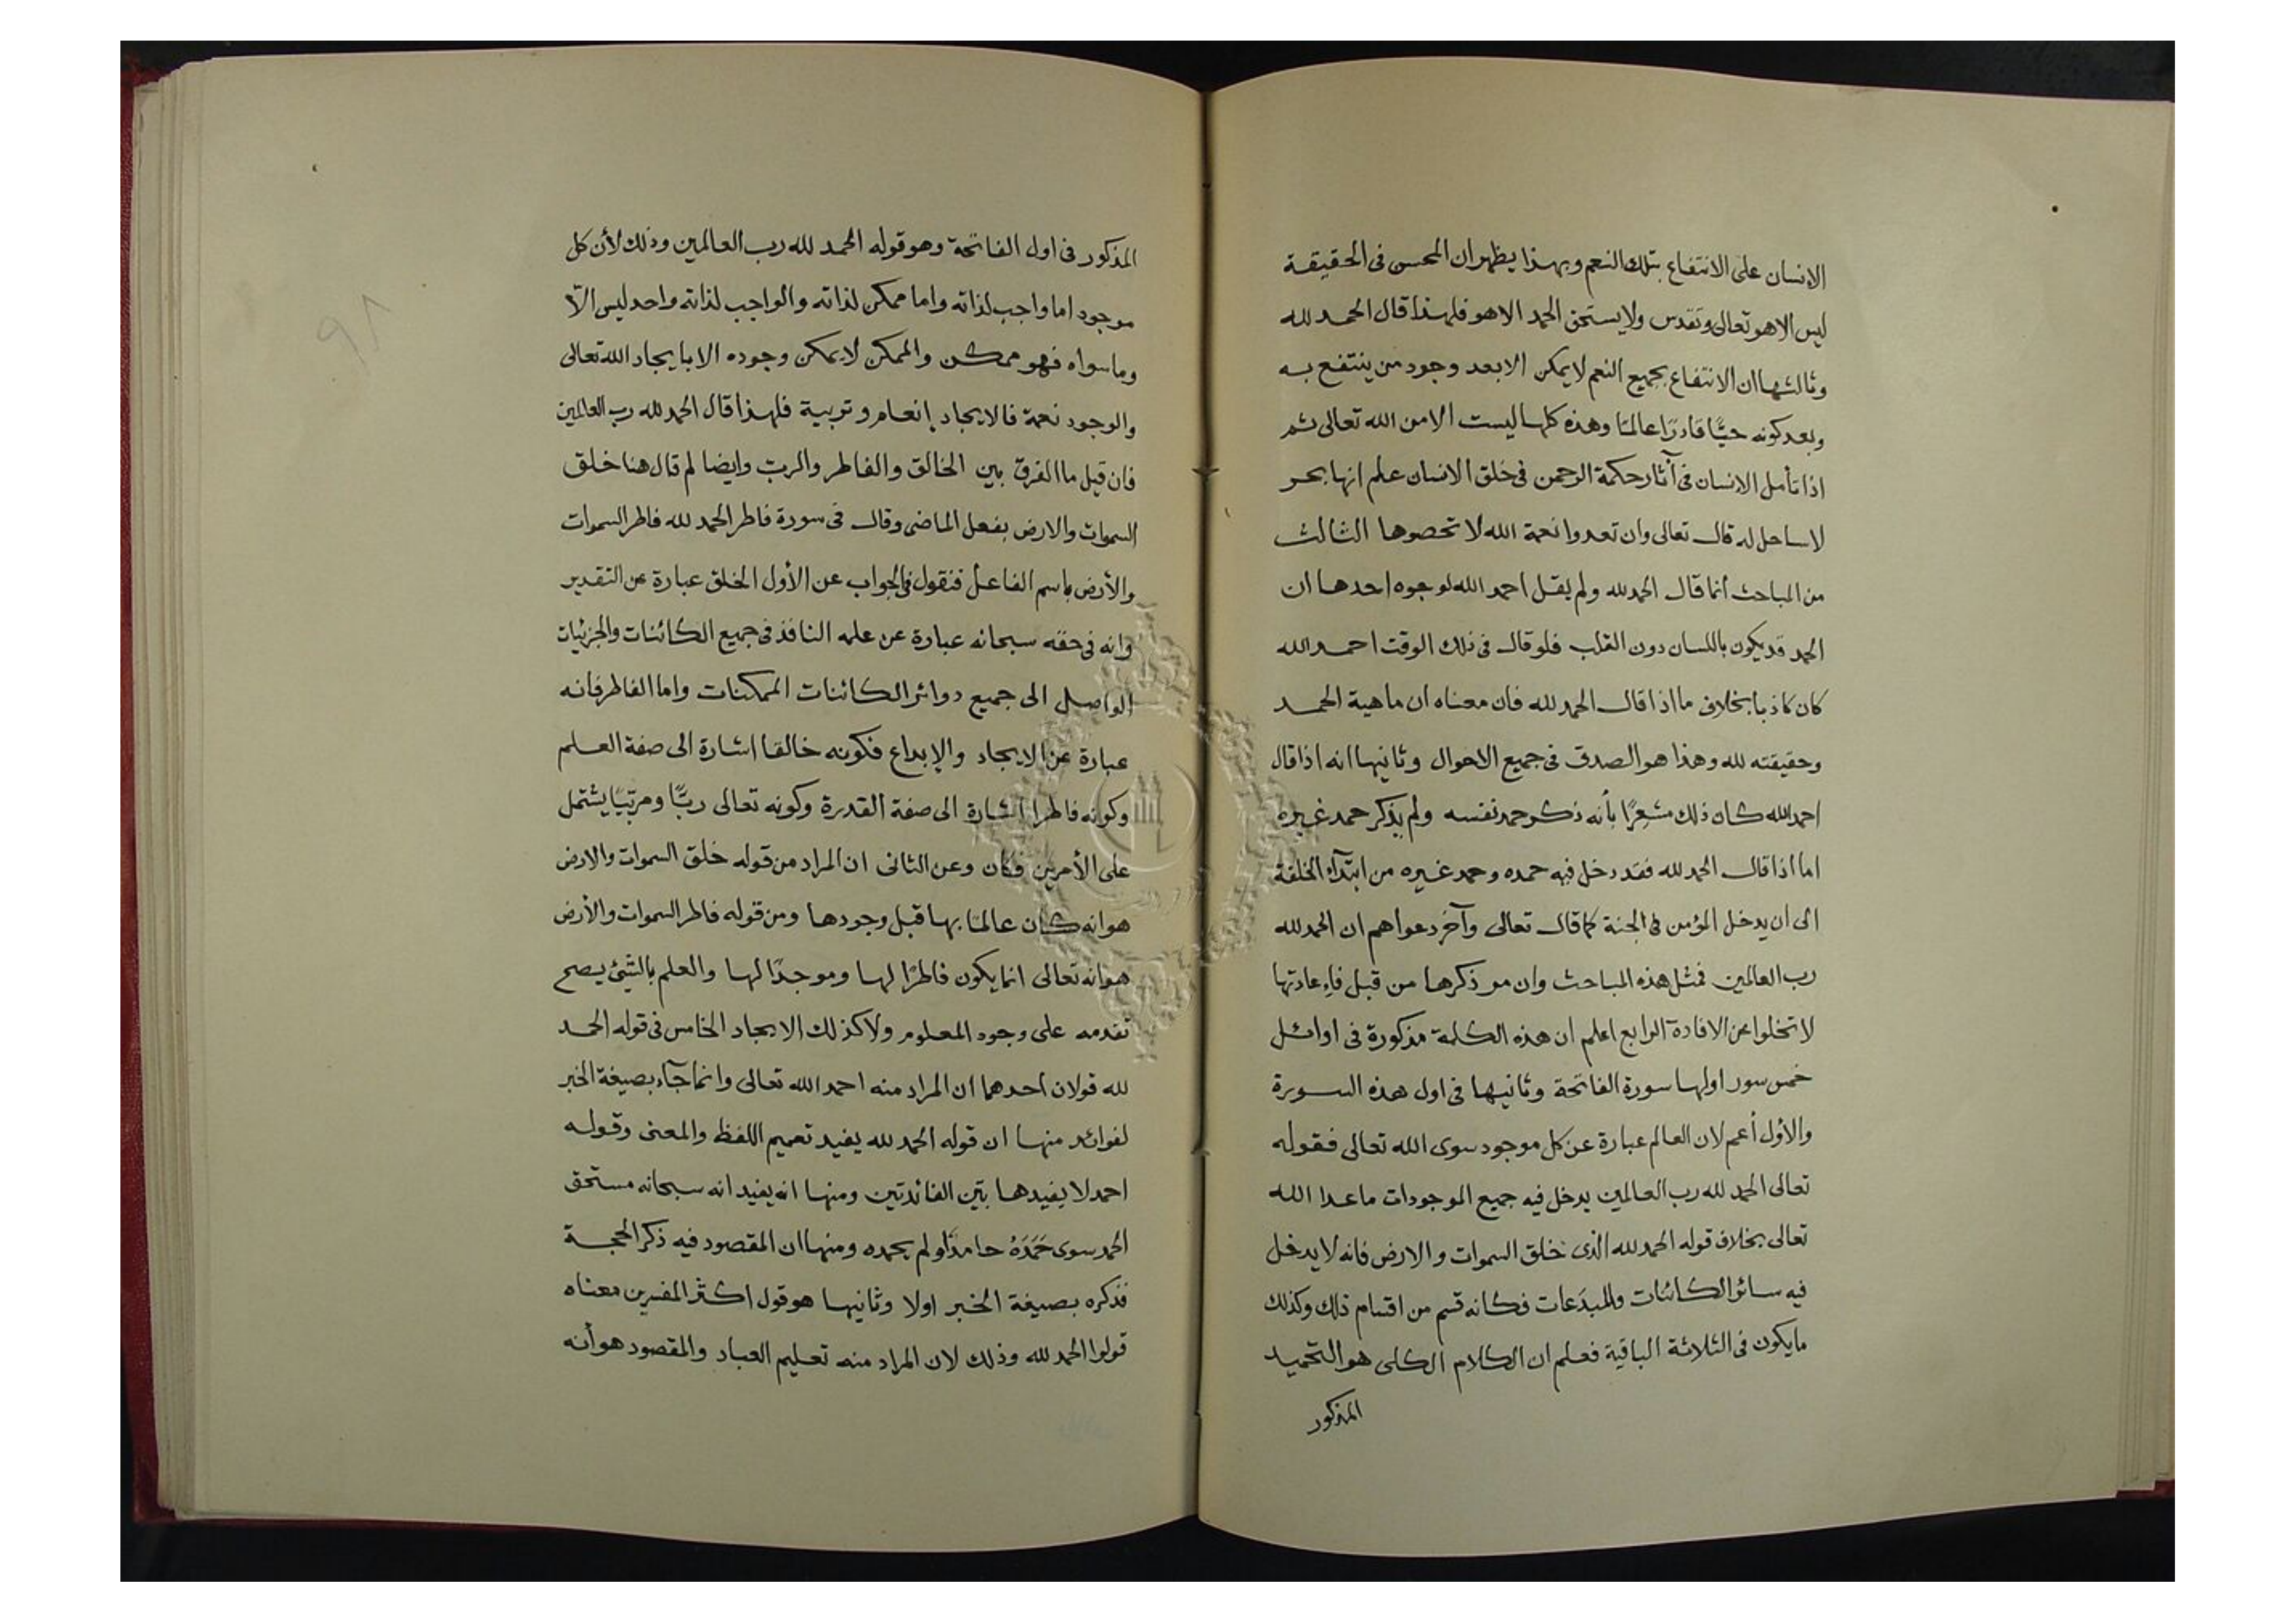 الانسان على الانتفاع بتلك النعم وبهذا يظهر ان المحسن فى الحقيقة
ليس الا هو تعالى وتقدس ولا يستحق الحمد الا هو فلهذا قال الحمد لله
وثالثها ان الانتفاع بجميع النعم لا يمكن الا بعد وجود من ينتفع به
وبعد كونه حيًّا قادرًا عالمًا وهذه كلها ليست الا من الله تعالى ثم
اذا تأمل الانسان فى آثار حكمة الرحمن فى خلق الانسان علم انها بحر
لا ساحل له قال تعالى وان تعدوا نعمة الله لا تحصوها الثالث
من المباحث انما قال الحمد لله ولم يقل احمد الله لوجوه احدها ان
الحمد قد يكون باللسان دون القلب فلو قال فى ذلك الوقت احمد الله
كان كاذبا بخلاف ما اذا قال الحمد لله فان معناه ان ماهية الحمد
وحقيقته لله وهذا هو الصدق فى جميع الاحوال وثانيها انه اذا قال
احمد الله كان ذلك مشعرًا بأنه ذكر حمد نفسه ولم يذكر حمد غيره
اما اذا قال الحمد لله فقد دخل فيه حمده وحمد غيره من ابتدآء الخلقة
الى ان يدخل المؤمن فى الجنة كما قال تعالى وآخر دعواهم ان الحمد لله
رب العالمين فمثل هذه المباحث وان مر ذكرها من قبل فاعادتها
لا تخلوا عن الافادة الرابع اعلم ان هذه الكلمة مذكورة فى اوائل
خمس سور اولها سورة الفاتحة وثانيها فى اول هذه السورة
والأول أعم لان العالم عبارة عن كل موجود سوى الله تعالى فقوله
تعالى الحمد لله رب العالمين يدخل فيه جميع الموجودات ما عدا الله
تعالى بخلاف قوله الحمد لله الذى خلق السموات والارض فانه لا يدخل
فيه سائر الكائنات والمبدَعات فكانه قسم من اقسام ذلك وكذلك
ما يكون فى الثلاثة الباقية فعلم ان الكلام الكلى هو التحميد
المذكور
المذكور فى اول الفاتحة وهو قوله الحمد لله رب العالمين وذلك لأن كل
موجود اما واجب لذاته واما ممكن لذاته والواجب لذاته واحد ليس الّا
وما سواه فهو ممكن والممكن لا يمكن وجوده الا بايجاد الله تعالى
والوجود نعمة فالايجاد إنعام وتربية فلهذا قال الحمد لله رب العالمين
فان قيل ما الفرق بين الخالق والفاطر والربّ وايضا لم قال هنا خلق
السموات والارض بفعل الماضى وقال فى سورة فاطر الحمد لله فاطر السموات
والأرض باسم الفاعل فنقول فى الجواب عن الأول الخلق عبارة عن التقدير
وانه فى حقه سبحانه عبارة عن علمه النافذ فى جميع الكائنات والجزئيات
الواصل الى جميع دوائر الكائنات الممكنات واما الفاطر فانه
عبارة عن الايجاد والإبداع فكونه خالقا اشارة الى صفة العلم
وكونه فاطرا اشارة الى صفة القدرة وكونه تعالى ربًّا ومربّيًا يشتمل
على الأمرين فكان وعن الثانى ان المراد من قوله خلق السموات والارض
هو انه كان عالمًا بها قبل وجودها ومن قوله فاطر السموات والأرض
هو انه تعالى انما يكون فاطرًا لها وموجدًا لها والعلم بالشّئ يصح
تقدمه على وجود المعلوم ولا كذلك الايجاد الخامس فى قوله الحمد
لله قولان احدهما ان المراد منه احمد الله تعالى وانما جآء بصيغة الخبر
لفوائد منها ان قوله الحمد لله يفيد تعميم اللفظ والمعنى وقوله
احمد لا يفيدها بتين الفائدتين ومنها انه يفيد انه سبحانه مستحق
الحمد سوى حَمَدَهُ حامدٌ او لم يحمده ومنها ان المقصود فيه ذكر الحجة
فذكره بصيغة الخبر اولا وثانيها هو قول اكثر المفسرين معناه
قولوا الحمد لله وذلك لان المراد منه تعليم العباد والمقصود هو أنه
٩٨